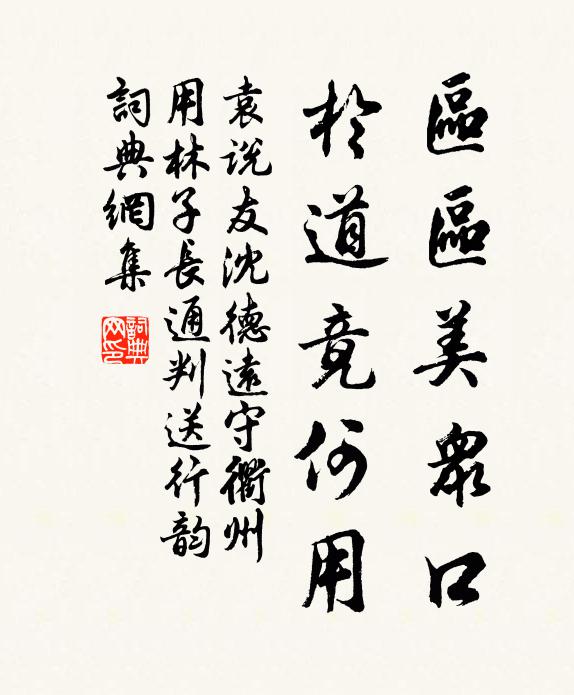 區區美眾口
於道竟何用
袁說友沈德遠守衢州
用林子長通判送行韵
詞典網集
詞典网印